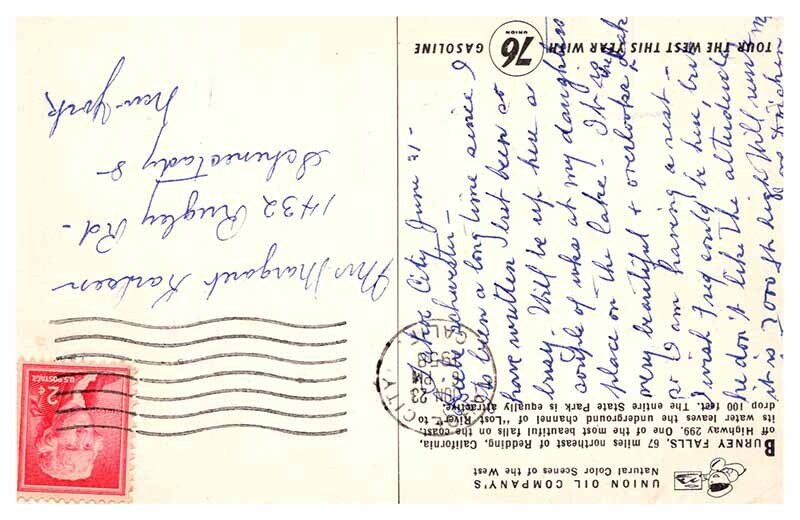 UNION OIL COMPANY'S
Natural Color Scenes of the West
BURNEY FALLS, 67 miles northeast of Redding, California,
off Highway 299. One of the most beautiful falls on the coast,
its water leaves the underground channel of "Lost River" to
drop 100 feet. The entire State Park is equally attractive.
TOUR THE WEST THIS YEAR WITH
UNION
76
GASOLINE
City June 21 -
Schwester -
Its been a long time since I
have written I been so
busy. Will be up here a
couple of weeks at my daughters
place on the lake. It is
very beautiful & overlooks the lake
I am having a rest -
I wish Fred could be here but
he don't like the altitude
it is 7000 ft high Will
CITY
JUN 23
PM
CALIF.
U.S. POSTAGE
2¢
Mrs Margaret
1432 Rugley Rd -
Schenectady 8 -
New York